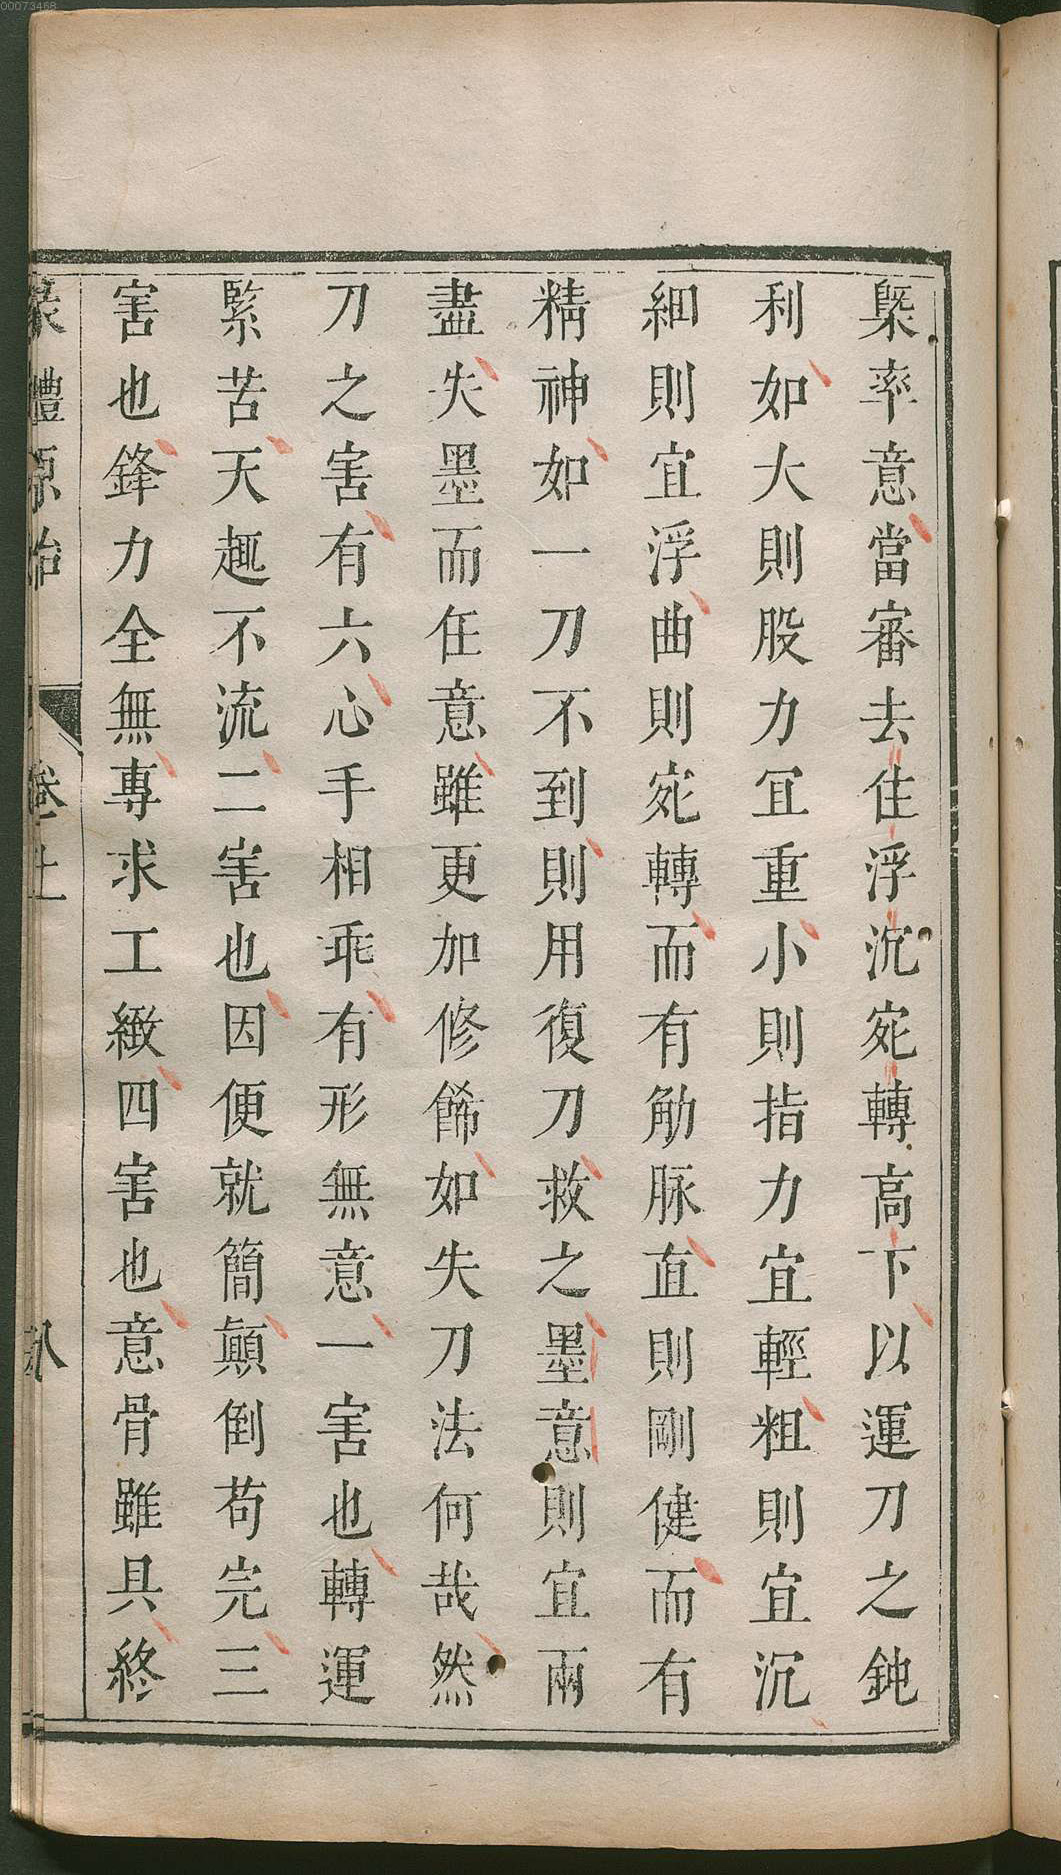 00073468
槩率意當審去住浮沉宛轉高下以運刀之鈍
利如大則股力冝重小則指力宜輕粗則宜沉
細則宜浮曲則宛轉而有觔脉直則剛健而有
精神如一刀不到則用復刀救之墨意則宜兩
盡失墨而任意雖更加修餙如失刀法何哉然
刀之害有六心手相乖有形無意一害也轉運
緊苦天趣不流二害也因便就簡顛倒苟完三
害也鋒力全無專求工緻四害也意骨雖具終
體原始 卷上 八